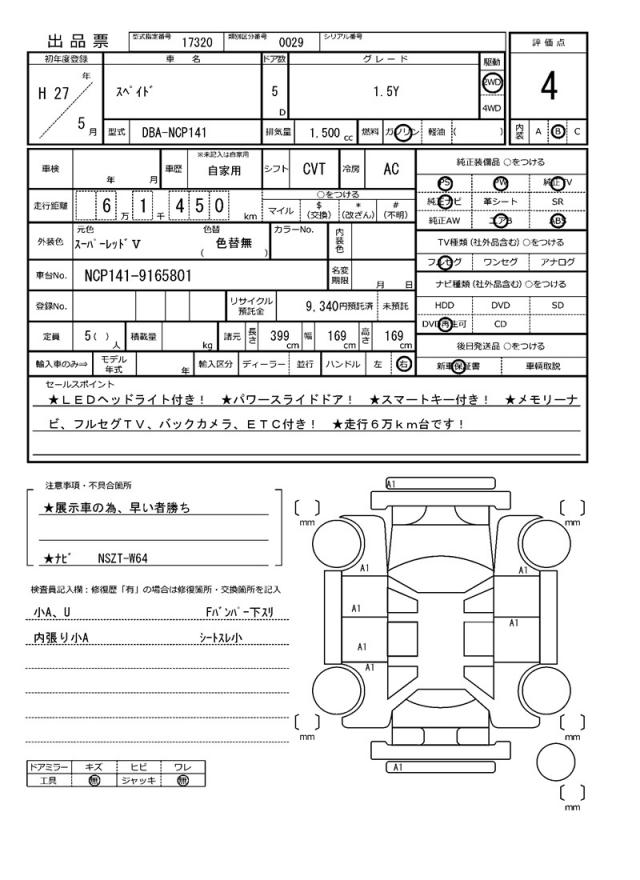 出品票 型式指定番号 17320 類別区分番号 0029 シリアル番号
評価点
4
内装 A B C
初年度登録 車名 ドア数 グレード 駆動
H 27 年 5 月 ｽﾍﾟｲﾄﾞ 5 D 1.5Y 2WD 4WD
型式 DBA-NCP141 排気量 1.500 cc 燃料 ガソリン 軽油 ( )
車検 年 月 車歴 ※未記入は自家用 自家用 シフト CVT 冷房 AC
走行距離 6 万 1 千 4 5 0 km
○をつける
マイル $ (交換) * (改ざん) # (不明)
外装色 元色 ｽｰﾊﾟｰﾚｯﾄﾞV 色替 ( 色替無 ) カラーNo. 内装色
車台No. NCP141-9165801 名変期限 月 日
登録No. リサイクル預託金 9,340円預託済 未預託
定員 5( ) 人 積載量 kg 諸元 長さ 399 cm 幅 169 cm 高さ 169 cm
輸入車のみ⇒ モデル年式 年 輸入区分 ディーラー 並行 ハンドル 左 右
純正装備品 ○をつける
PS PW 純正TV
純正ナビ 革シート SR
純正AW エアB ABS
TV種類(社外品含む) ○をつける
フルセグ ワンセグ アナログ
ナビ種類(社外品含む) ○をつける
HDD DVD SD
DVD再生可 CD
後日発送品 ○をつける
新車保証書 車輌取説
セールスポイント
★ＬＥＤヘッドライト付き！ ★パワースライドドア！ ★スマートキー付き！ ★メモリーナ
ビ、フルセグＴＶ、バックカメラ、ＥＴＣ付き！ ★走行６万ｋｍ台です！
注意事項・不具合箇所
★展示車の為、早い者勝ち
★ﾅﾋﾞ NSZT-W64
検査員記入欄：修復歴「有」の場合は修復箇所・交換箇所を記入
小A、U Fﾊﾞﾝﾊﾟｰ下ｽﾘ
内張り小A ｼｰﾄｽﾚ小
ドアミラー キズ ヒビ ワレ
工具 無 ジャッキ 無
A1
[ ] mm [ ] mm
A1 A1
A1
A1
A1
A1
[ ] mm [ ] mm
A1
[ ] mm